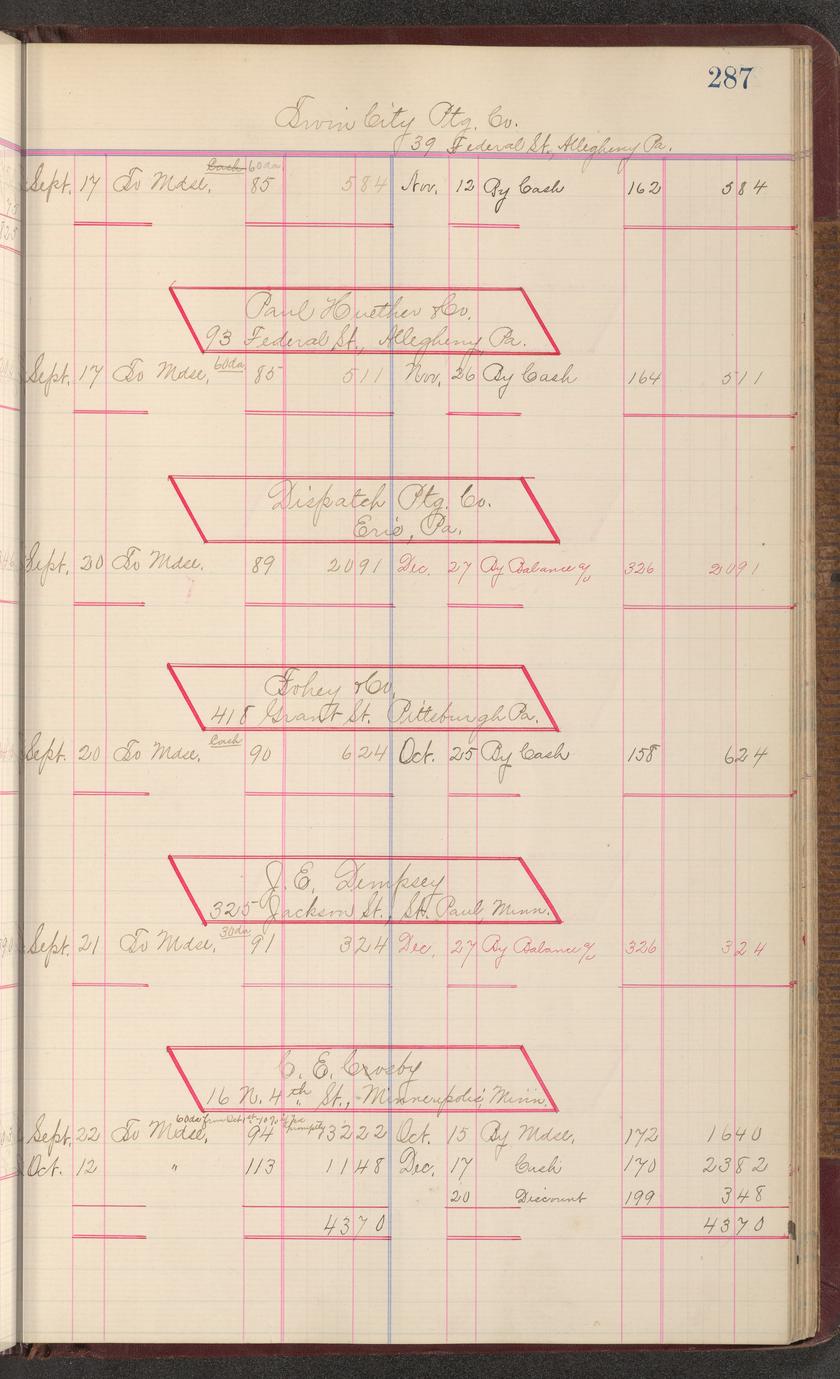 287
Twin City Ptg. Co.
39 Federal St., Allegheny Pa.
Cash 60da.
Sept. 17 To Mdse, 85 584 Nov. 12 By Cash 162 584
Paul Huether & Co.
93 Federal St., Allegheny, Pa.
Sept. 17 To Mdse, 60da 85 511 Nov. 26 By Cash 164 511
Dispatch Ptg. Co.
Erie, Pa.
Sept. 20 To Mdse. 89 2091 Dec. 27 By Balance % 326 2091
Fohey & Co.
418 Grant St. Pittsburgh Pa.
Sept. 20 To Mdse, Cash 90 624 Oct. 25 By Cash 158 624
J. E. Dempsey
325 Jackson St., St. Paul, Minn.
Sept. 21 To Mdse, 30da 91 324 Dec. 27 By Balance % 326 324
C. E. Crosby
16 N. 4th St., Minneapolis, Minn.
60da from Oct 1st
Sept. 22 To Mdse, 94 3222 Oct. 15 By Mdse, 172 1640
Oct. 12 " 113 1148 Dec. 17 Cash 170 2382
20 Discount 199 348
4370 4370